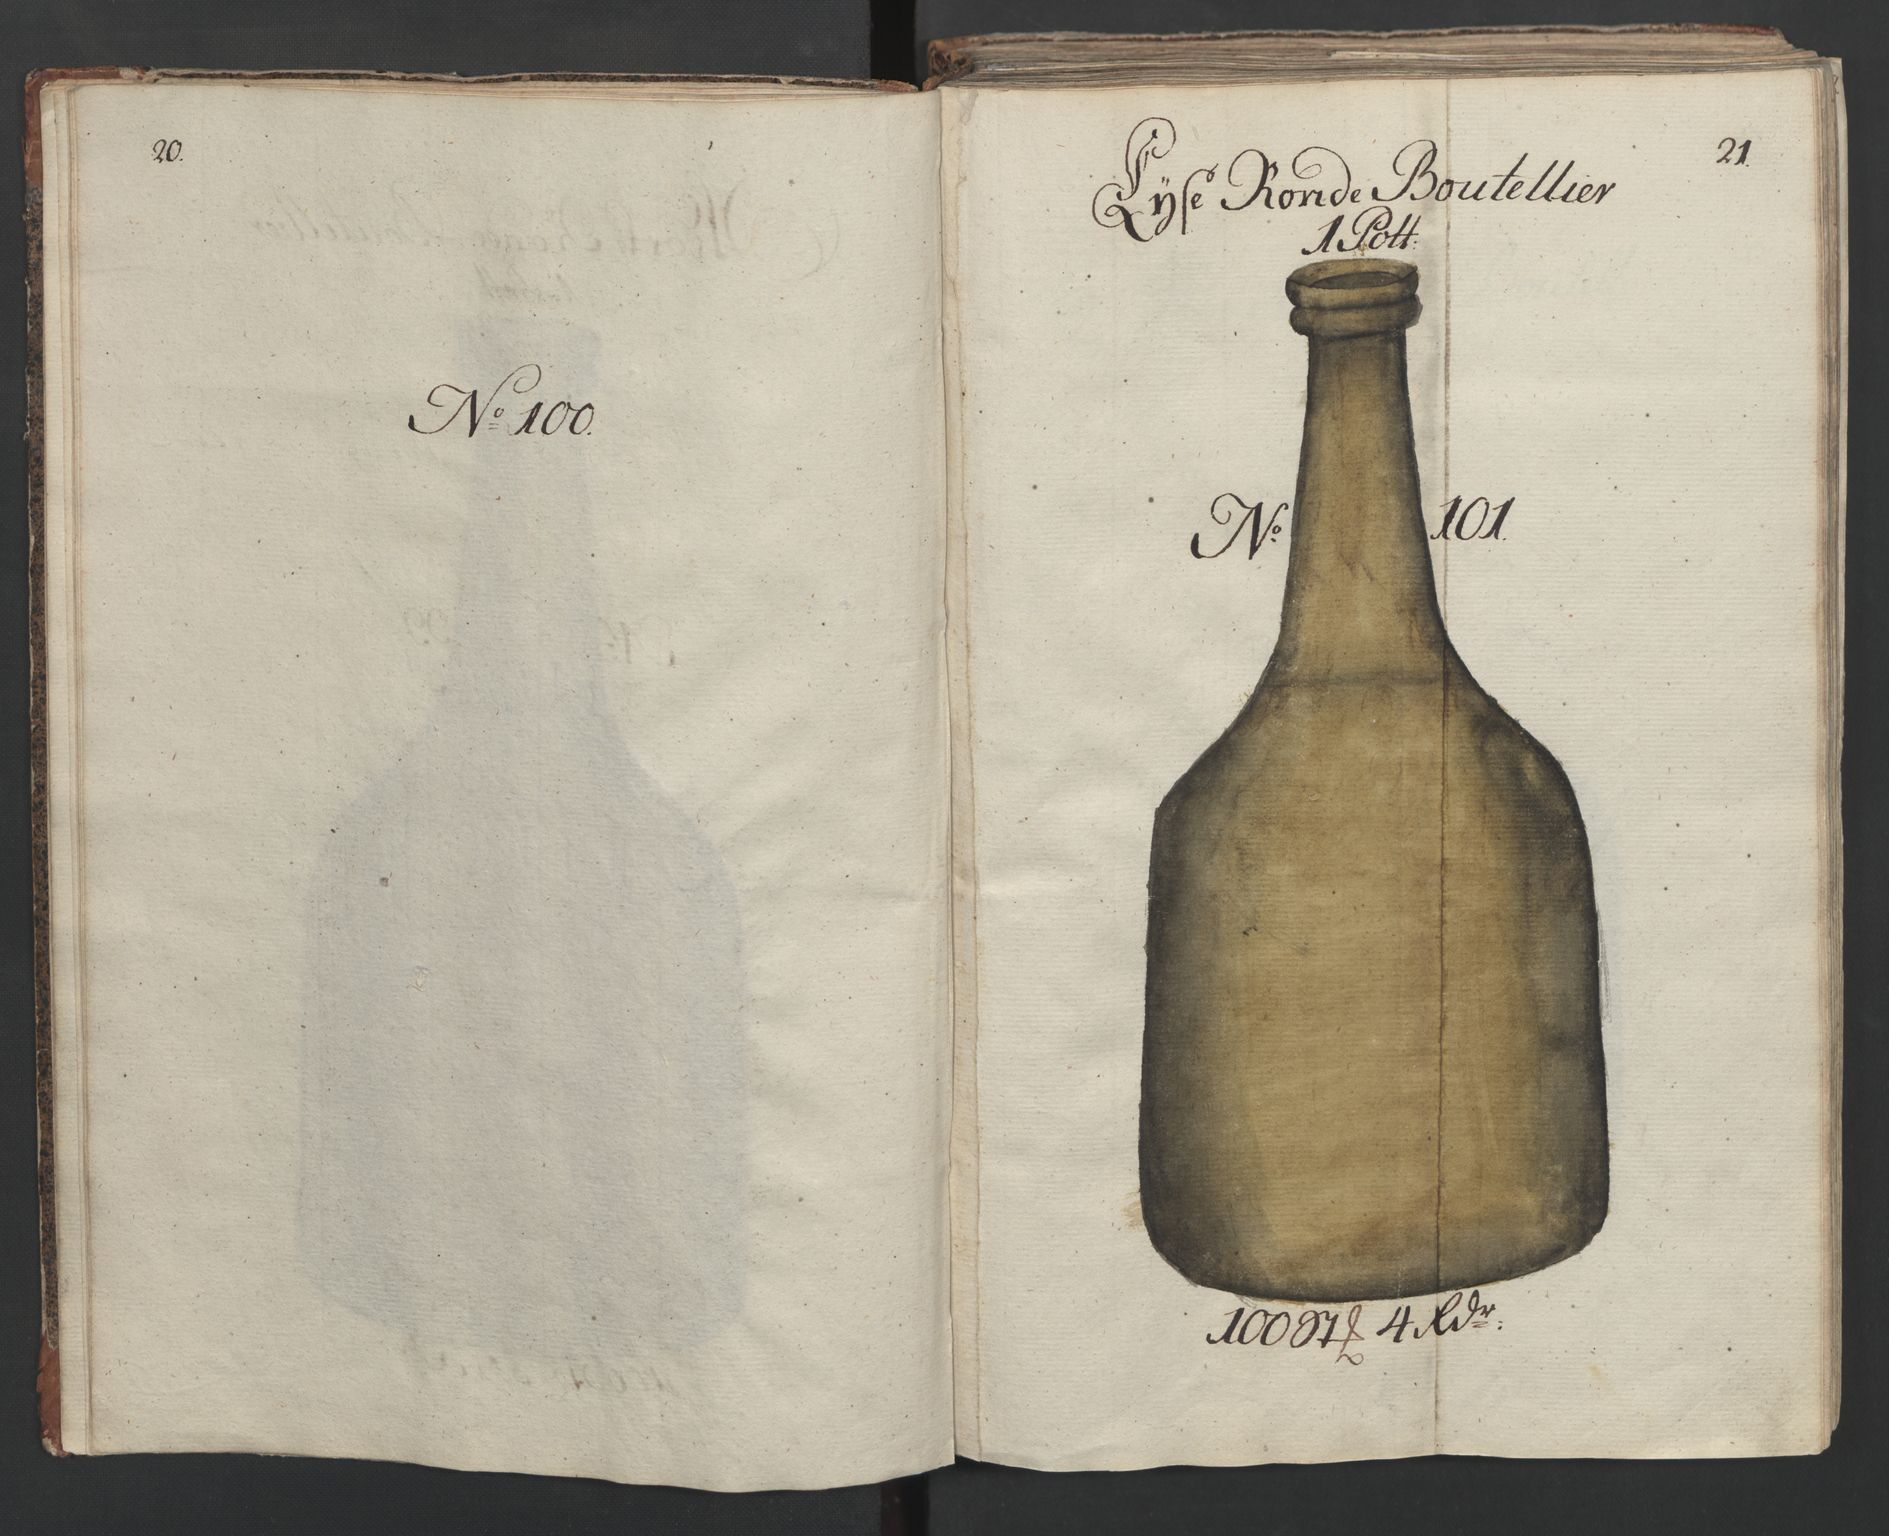 20.
No 100.
21.
Lyse Ronde Boutellier
1 Pott.
No 101.
100 St 4 Rdr.